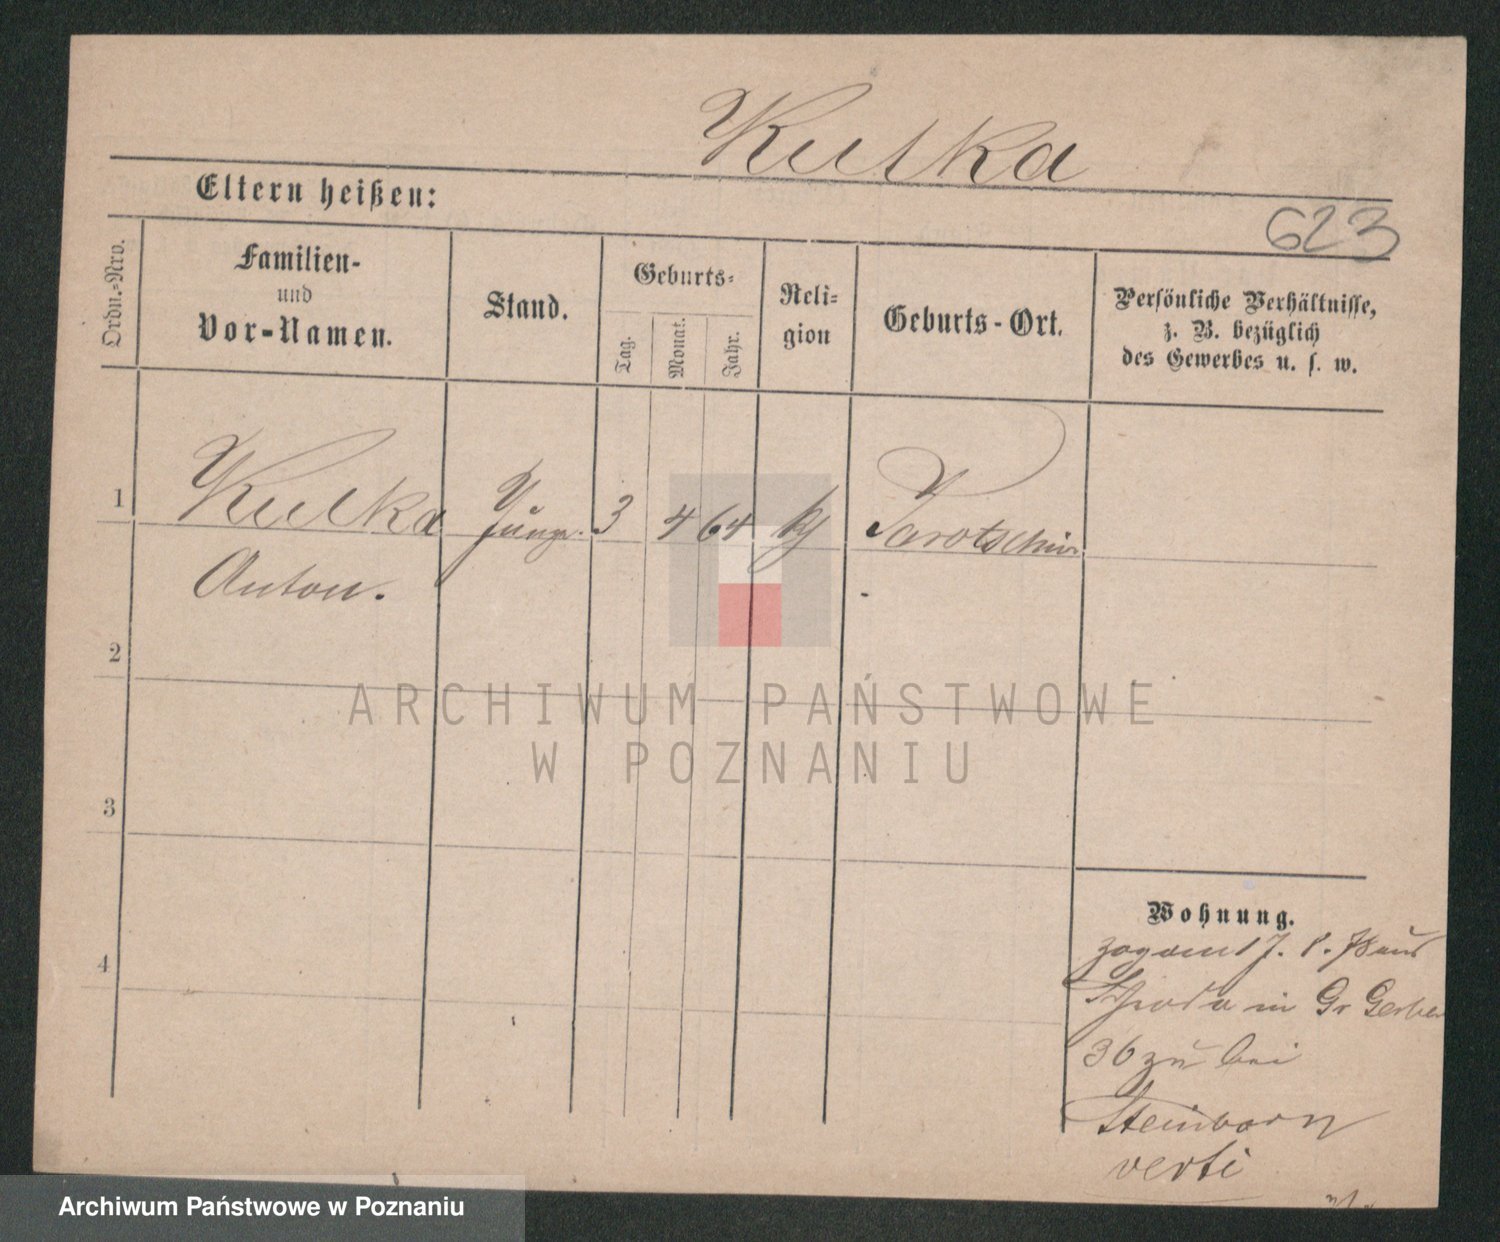 Kulka
Eltern heißen:
623
Ordn.-Nro.
Familien-
und
Vor-Namen.
Stand.
Geburts-
Tag.
Monat.
Jahr.
Reli-
gion
Geburts-Ort.
Persönliche Verhältnisse,
z. B. bezüglich
des Gewerbes u. s. w.
1
Kulka
3
4
64
Jarotschin
Anton.
2
ARCHIWUM PAŃSTWOWE
W POZNANIU
3
Wohnung.
4
Schroda in Gr Gerber
36 zu bei
Steinborn
Archiwum Państwowe w Poznaniu